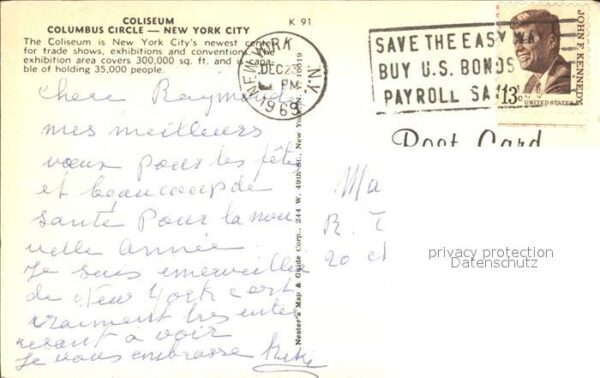 COLISEUM
COLUMBUS CIRCLE — NEW YORK CITY
K 91
The Coliseum is New York City's newest center
for trade shows, exhibitions and conventions. The
exhibition area covers 300,000 sq. ft. and is capa-
ble of holding 35,000 people.
NEW YORK, N.Y.
DEC 23
PM
1969
SAVE THE EASY WAY
BUY U.S. BONDS
PAYROLL SA
JOHN F. KENNEDY
13c
UNITED STATES
Post Card
chere Raymonde
mes meilleurs
vœux pour les fêtes
et beaucoup de
santé pour la nou
velle année
Je suis emerveillée
de New York c'est
vraiment très inter
essant a voir
Je vous embrasse
Nester's Map & Guide Corp., 244 W. 49th St., New York, N.Y. 10019
Ma
R. T
20 ch
privacy protection
Datenschutz